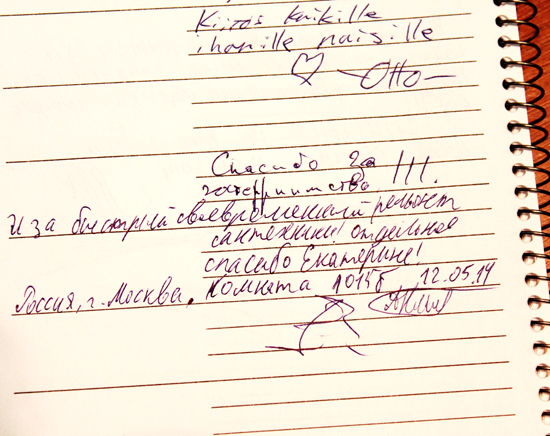 Kiitos kaikille
ihanille naisille
♡ —Otto—
Спасибо за
гостеприимство !!!
и за быстрый своевременный ремонт
сантехники! отдельное
спасибо Екатерине!
Россия, г. Москва. Комната 1015б 12.05.14